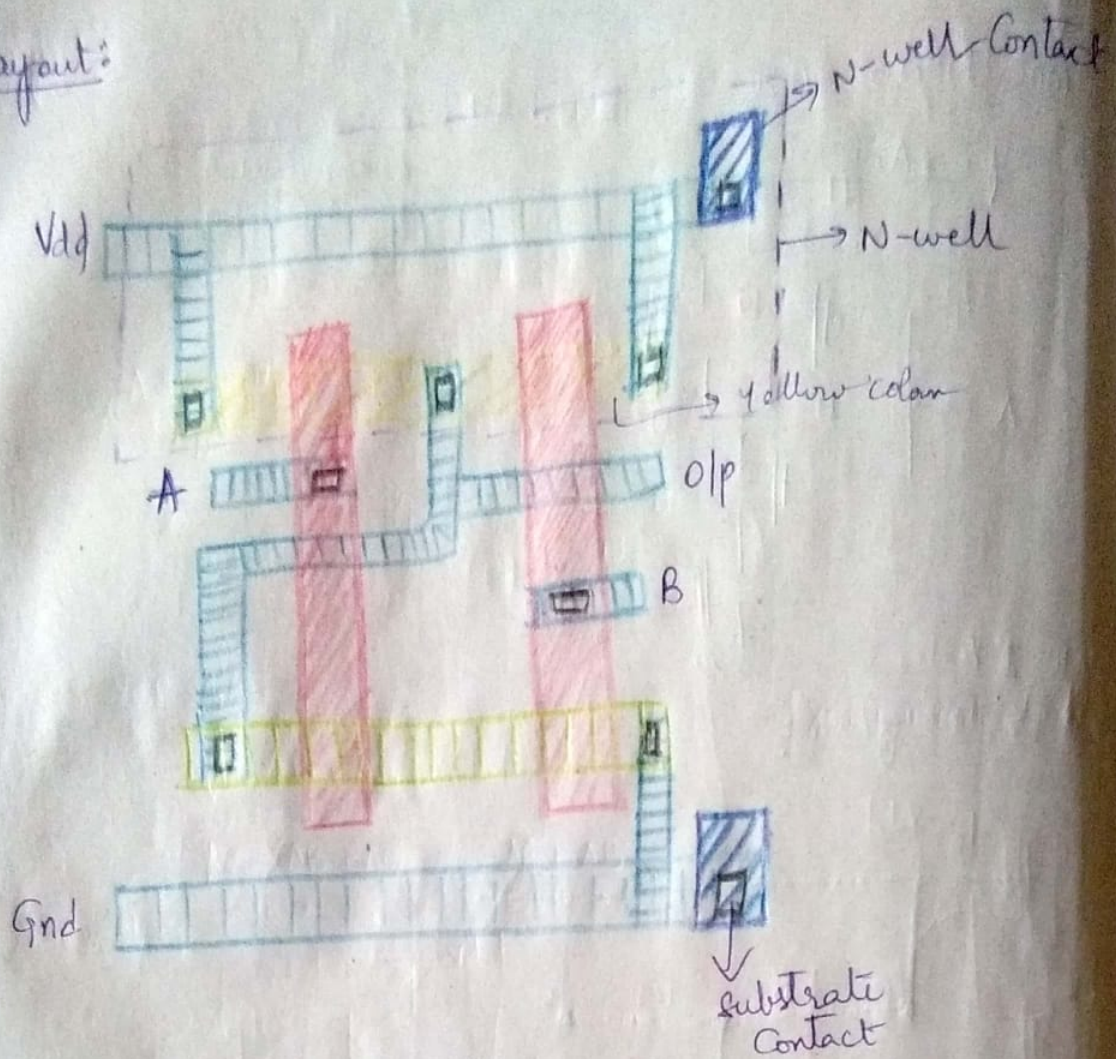 ayout:
N-well Contact
Vdd
N-well
Yellow colour
A
O/p
B
Gnd
Substrate
Contact